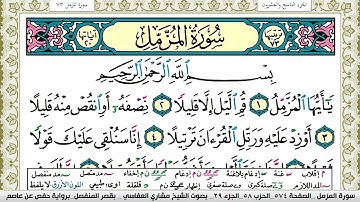 الجزء التاسع والعشرون
سورة المزمل ٧٣
سُورَةُ المُزَّمِّل
بِسْمِ اللَّهِ الرَّحْمَٰنِ الرَّحِيمِ
يَٰٓأَيُّهَا الْمُزَّمِّلُ ١ قُمِ الَّيْلَ إِلَّا قَلِيلًا ٢ نِّصْفَهُۥٓ أَوِ انقُصْ مِنْهُ قَلِيلًا
٣ أَوْ زِدْ عَلَيْهِ وَرَتِّلِ الْقُرْءَانَ تَرْتِيلًا ٤ إِنَّا سَنُلْقِى عَلَيْكَ قَوْلًا
سورة المزمل - الصفحة ٥٧٤ الجزء ٢٩ الحزب ٥٨ بصوت الشيخ مشاري العفاسي بقصر المنفصل برواية حفص عن عاصم